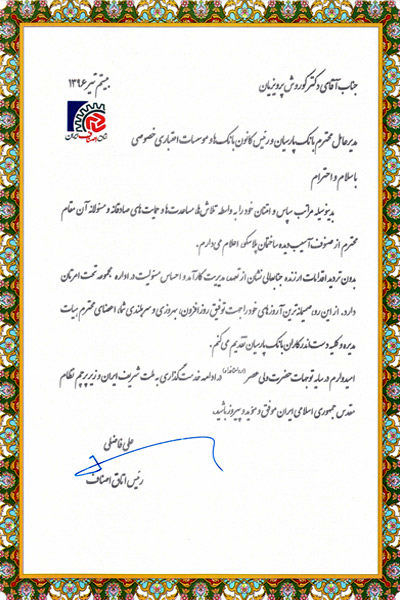 جناب آقای دکتر کوروش پرویزیان
بیستم تیر ۱۳۹۶
اتاق اصناف ایران
مدیرعامل محترم بانک پارسیان و رئیس کانون بانک ها و موسسات اعتباری خصوصی
باسلام و احترام
بدینوسیله مراتب سپاس و امتنان خود را به واسطه تلاش ها، مساعدت ها و حمایت های صادقانه و مسئولانه آن مقام
محترم از صنوف آسیب دیده ساختمان پلاسکو اعلام می دارم.
بدون تردید اقدامات ارزنده جنابعالی نشان از تعهد، مدیریت کارآمد و احساس مسئولیت در اداره مجموعه تحت امرتان
دارد. از این رو، صمیمانه ترین آرزوهای خود را جهت توفیق روزافزون، بهروزی و سربلندی شما، اعضای محترم هیات
مدیره و کلیه دست اندرکاران بانک پارسیان تقدیم می کنم.
امیدوارم در سایه توجهات حضرت ولی عصر در ادامه خدمت گذاری به ملت شریف ایران و زیر پرچم نظام
مقدس جمهوری اسلامی ایران موفق و موید و پیروز باشید.
علی فاضلی
رئیس اتاق اصناف